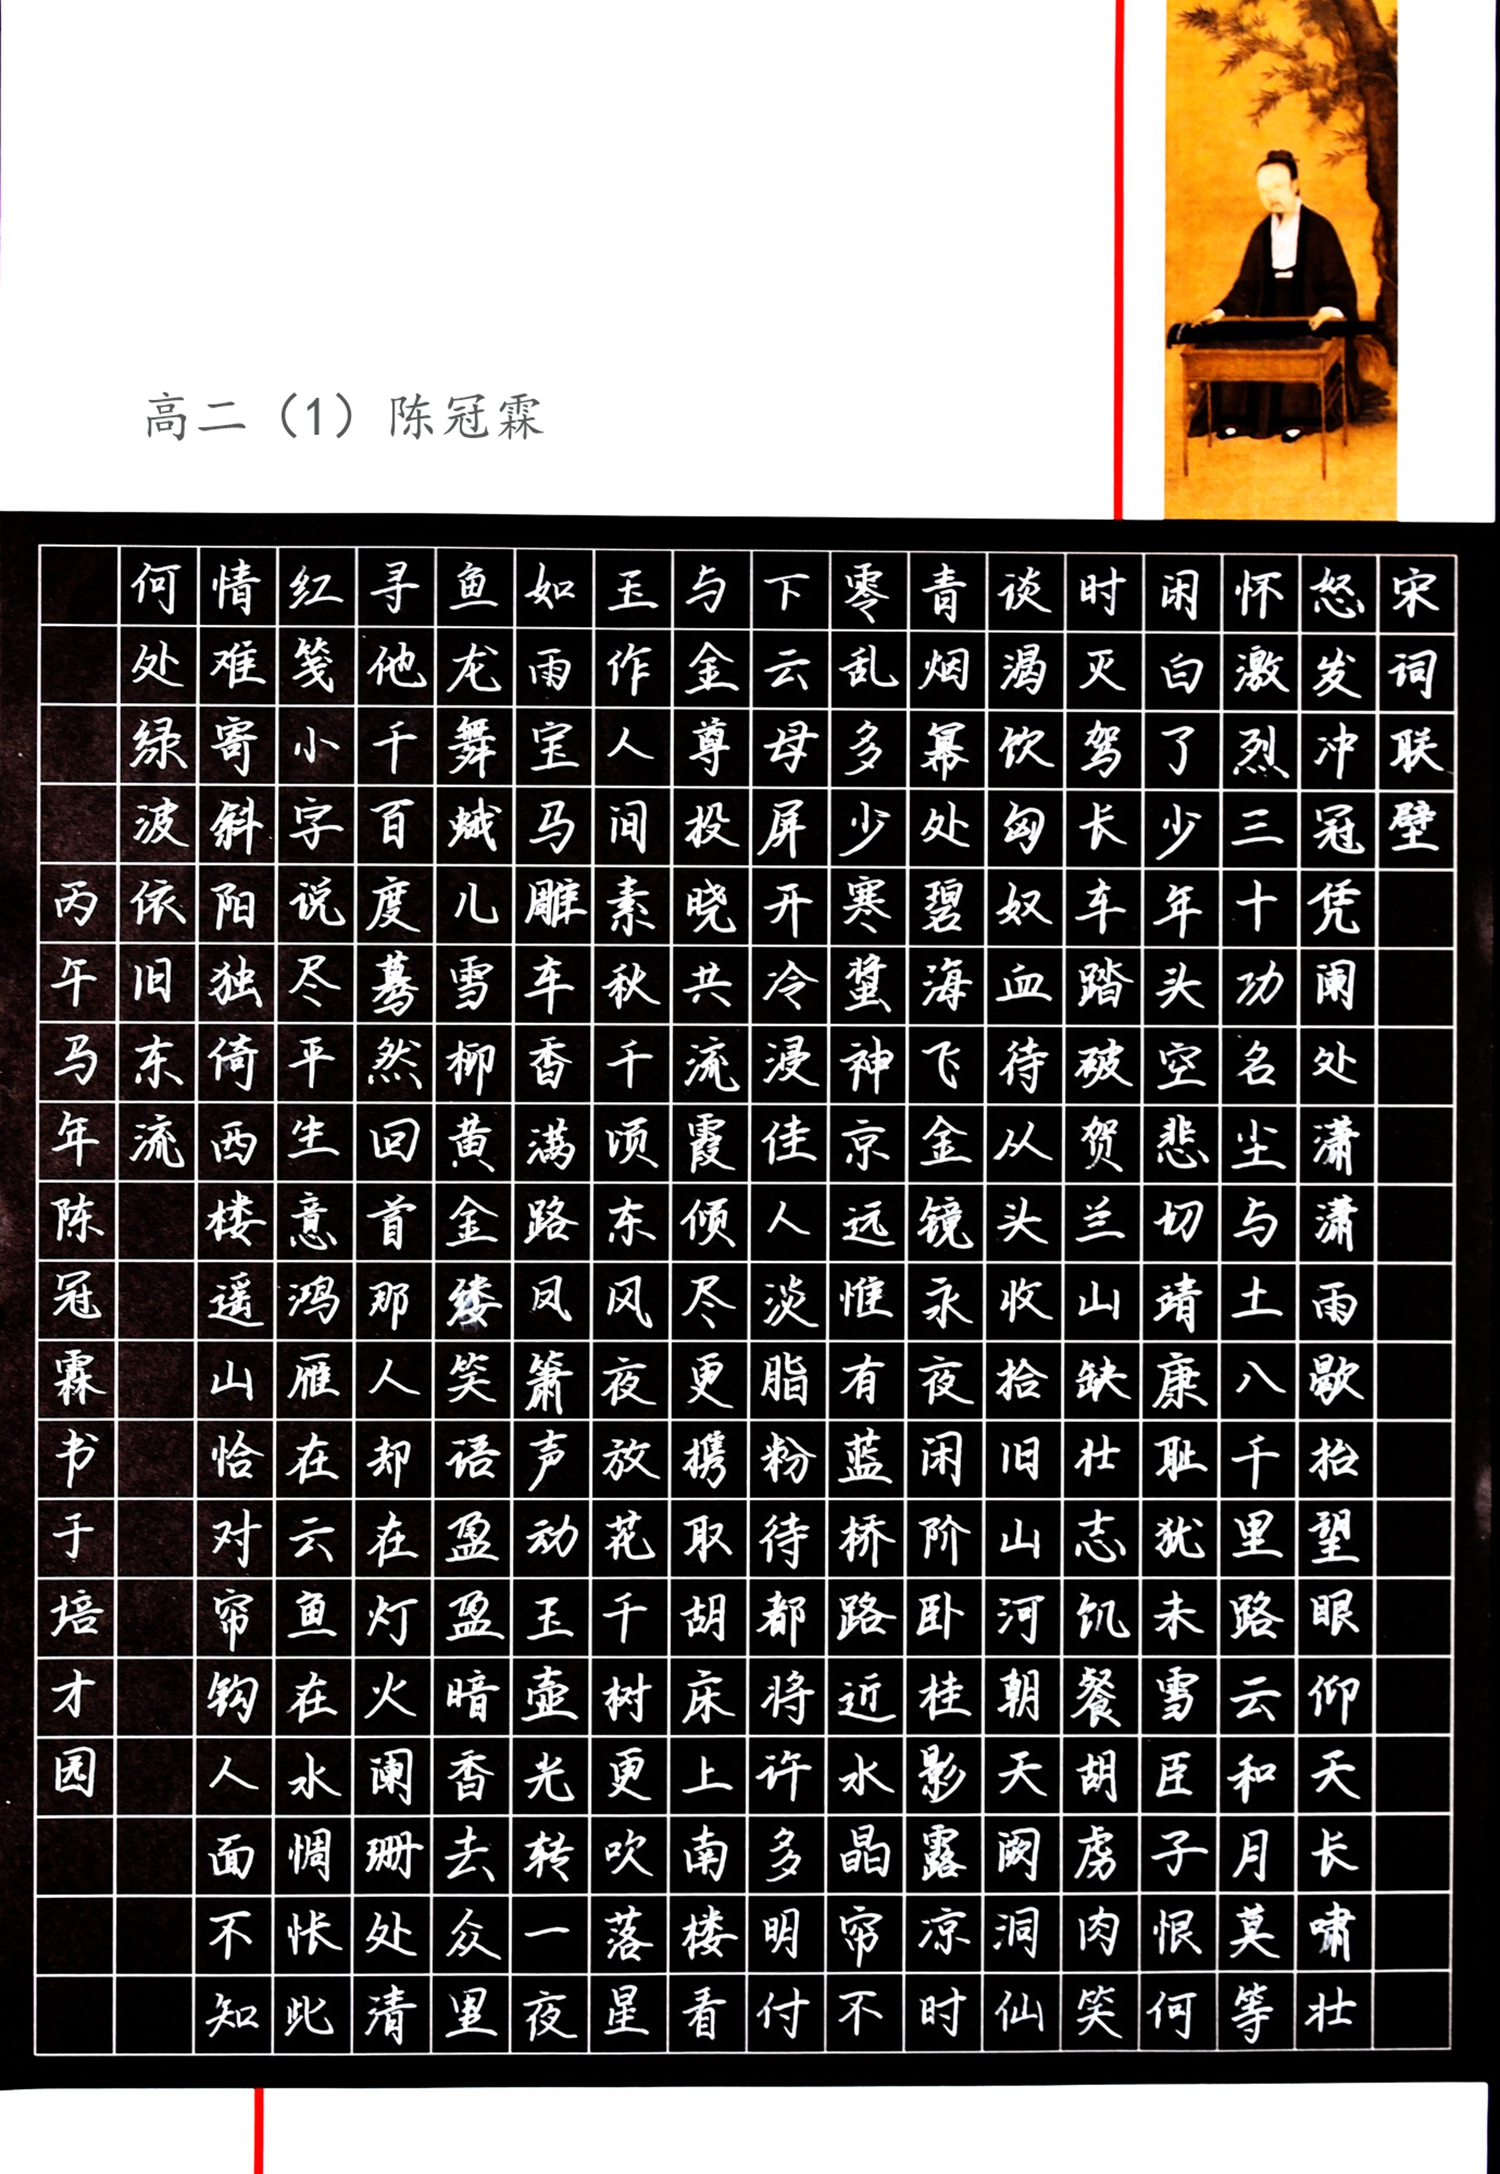 高二（1）陈冠霖
宋词联壁
怒发冲冠凭阑处潇潇雨歇抬望眼仰天长啸壮
怀激烈三十功名尘与土八千里路云和月莫等
闲白了少年头空悲切靖康耻犹未雪臣子恨何
时灭驾长车踏破贺兰山缺壮志饥餐胡虏肉笑
谈渴饮匈奴血待从头收拾旧山河朝天阙洞仙
青烟幂处碧海飞金镜永夜闲阶卧桂影露凉时
零乱多少寒螀神京远惟有蓝桥路近水晶帘不
下云母屏开冷浸佳人淡脂粉待都将许多明付
与金尊投晓共流霞倾尽更携取胡床上南楼看
玉作人间素秋千顷东风夜放花千树更吹落星
如雨宝马雕车香满路凤箫声动玉壶光转一夜
鱼龙舞蛾儿雪柳黄金缕笑语盈盈暗香去众里
寻他千百度蓦然回首那人却在灯火阑珊处清
红笺小字说尽平生意鸿雁在云鱼在水惆怅此
情难寄斜阳独倚西楼遥山恰对帘钩人面不知
何处绿波依旧东流
丙午马年陈冠霖书于培才园